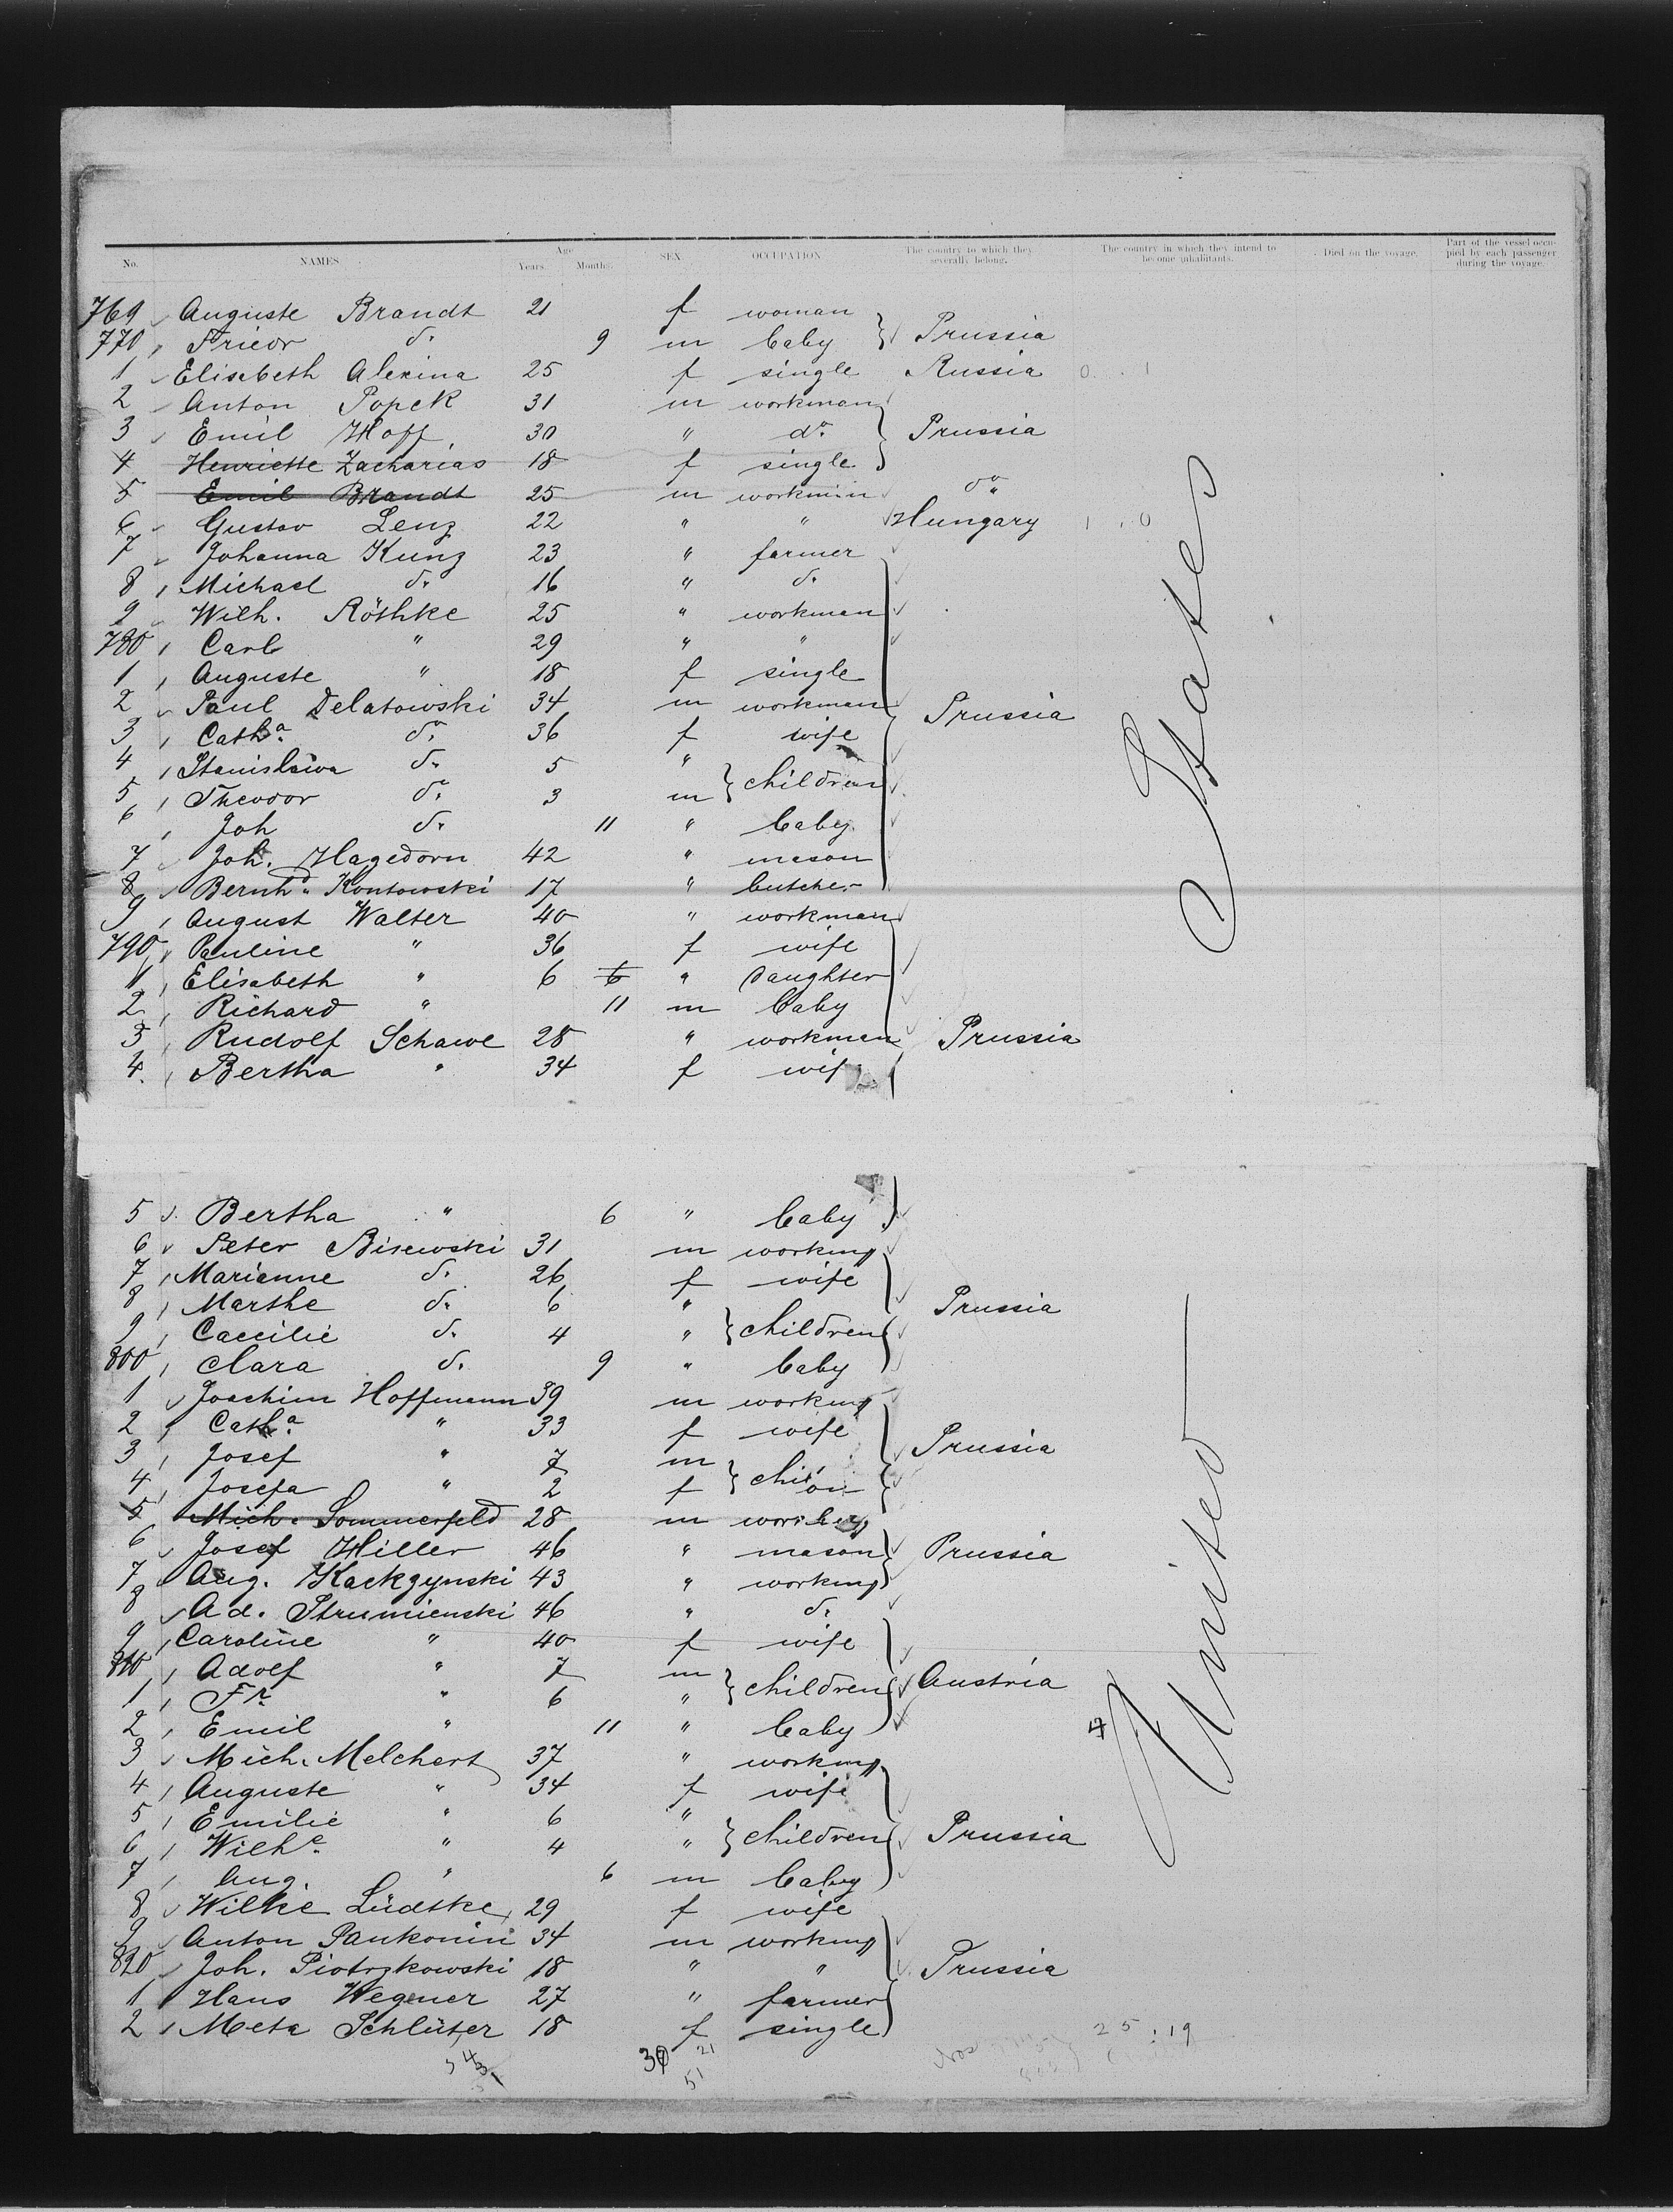 No. NAMES. Age Years. Months. SEX. OCCUPATION The country to which they severally belong. The country in which they intend to become inhabitants. Died on the voyage. Part of the vessel occupied by each passenger during the voyage.
769 Auguste Brandt 21 f woman
770 Friedr do. 9 m baby Prussia
1 Elisabeth Alexina 25 f single Russia 0 1
2 Anton Popek 31 m workman
3 Emil Hoff 30 " do. Prussia
4 Henriette Zacharias 18 f single
5 Emil Brandt 25 m workman do.
6 Gustav Lenz 22 " " Hungary 1 0
7 Johanna Kunz 23 " farmer
8 Michael do. 16 " do.
9 Wilh. Röthke 25 " workman
780 Carl " 29 " "
1 Auguste " 18 f single
2 Paul Delatowski 34 m workman Prussia
3 Catha. do. 36 f wife
4 Stanislawa do. 5 " children
5 Theodor do. 3 m
6 Joh do. 11 " baby
7 Joh. Hagedorn 42 " mason
8 Bernhd. Kontowski 17 " butcher
9 August Walter 40 " workman
790 Pauline " 36 f wife
1 Elisabeth " 6 6 " daughter
2 Richard " 11 m baby
3 Rudolf Schawe 28 " workman Prussia
4. Bertha " 34 f wife
5 Bertha " 6 " baby
6 Peter Bisewski 31 m working
7 Marianne do. 26 f wife
8 Marthe do. 6 " Prussia
9 Caecilie do. 4 " children
800 Clara do. 9 " baby
1 Joachim Hoffmann 39 m working
2 Catha. " 33 f wife
3 Josef " 7 m Prussia
4 Josefa " 2 f
5 Mich. Sommerfeld 28 m working
6 Josef Hiller 46 " mason Prussia
7 Aug. Kackzynski 43 " working
8 Ad. Strumienski 46 " do.
9 Caroline " 40 f wife
810 Adolf " 7 m children Austria
1 Fr. " 6 "
2 Emil " 11 " baby 4
3 Mich. Melchert 37 " working
4 Auguste " 34 f wife
5 Emilie " 6 "
6 Wilhe. " 4 " children Prussia
7 Aug. " 6 m baby
8 Wilke Lüdtke 29 f wife
9 Anton Pankonin 34 m working
820 Joh. Piotrzkowski 18 " " Prussia
1 Hans Wegener 27 " farmer
2 Meta Schlüter 18 f single
25 : 19
30 21
51
United States